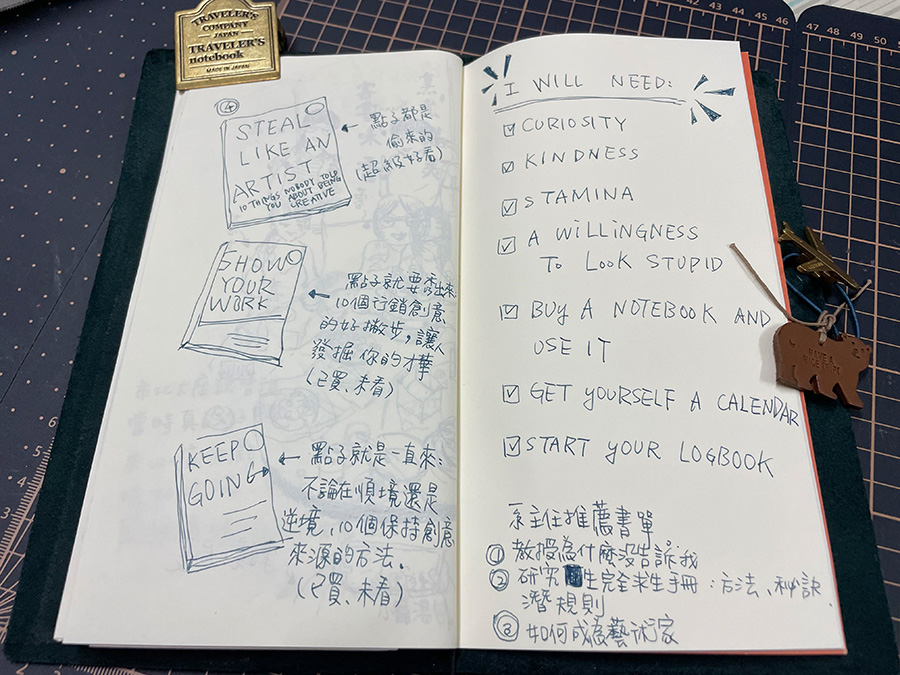 TRAVELER'S
COMPANY
JAPAN
TRAVELER'S
notebook
MADE IN JAPAN
42 43 44 45 46
47 48 49 50
④
STEAL
LIKE AN
ARTIST
10 THINGS NOBODY TOLD
YOU ABOUT BEING
CREATIVE
點子都是
偷來的
(超級好看)
SHOW
YOUR
WORK
點子就要秀出來
10個行銷創意
的好撇步,讓人
發掘你的才華
(已買、未看)
KEEP
GOING
點子就是一直來:
不論在順境還是
逆境,10個保持創意
來源的方法.
(已買、未看)
I WILL NEED:
CURIOSITY
KINDNESS
STAMINA
A WILLINGNESS
TO LOOK STUPID
BUY A NOTEBOOK AND
USE IT
GET YOURSELF A CALENDAR
START YOUR LOGBOOK
系主任推薦書單
① 教授為什麼沒告訴我
② 研究生完全求生手冊:方法、秘訣、
潛規則
③ 如何成為藝術家